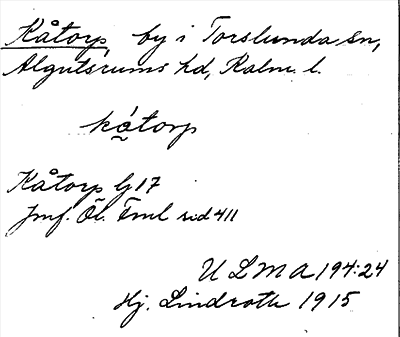 Kåtorp, by i Torslunda sn,
Algutsrums hd, Kalm. l.
kǻtorp
Kåtorp G17
Jmf. Öl. Fml sid 411
ULMA 194:24
Hj. Lindroth 1915